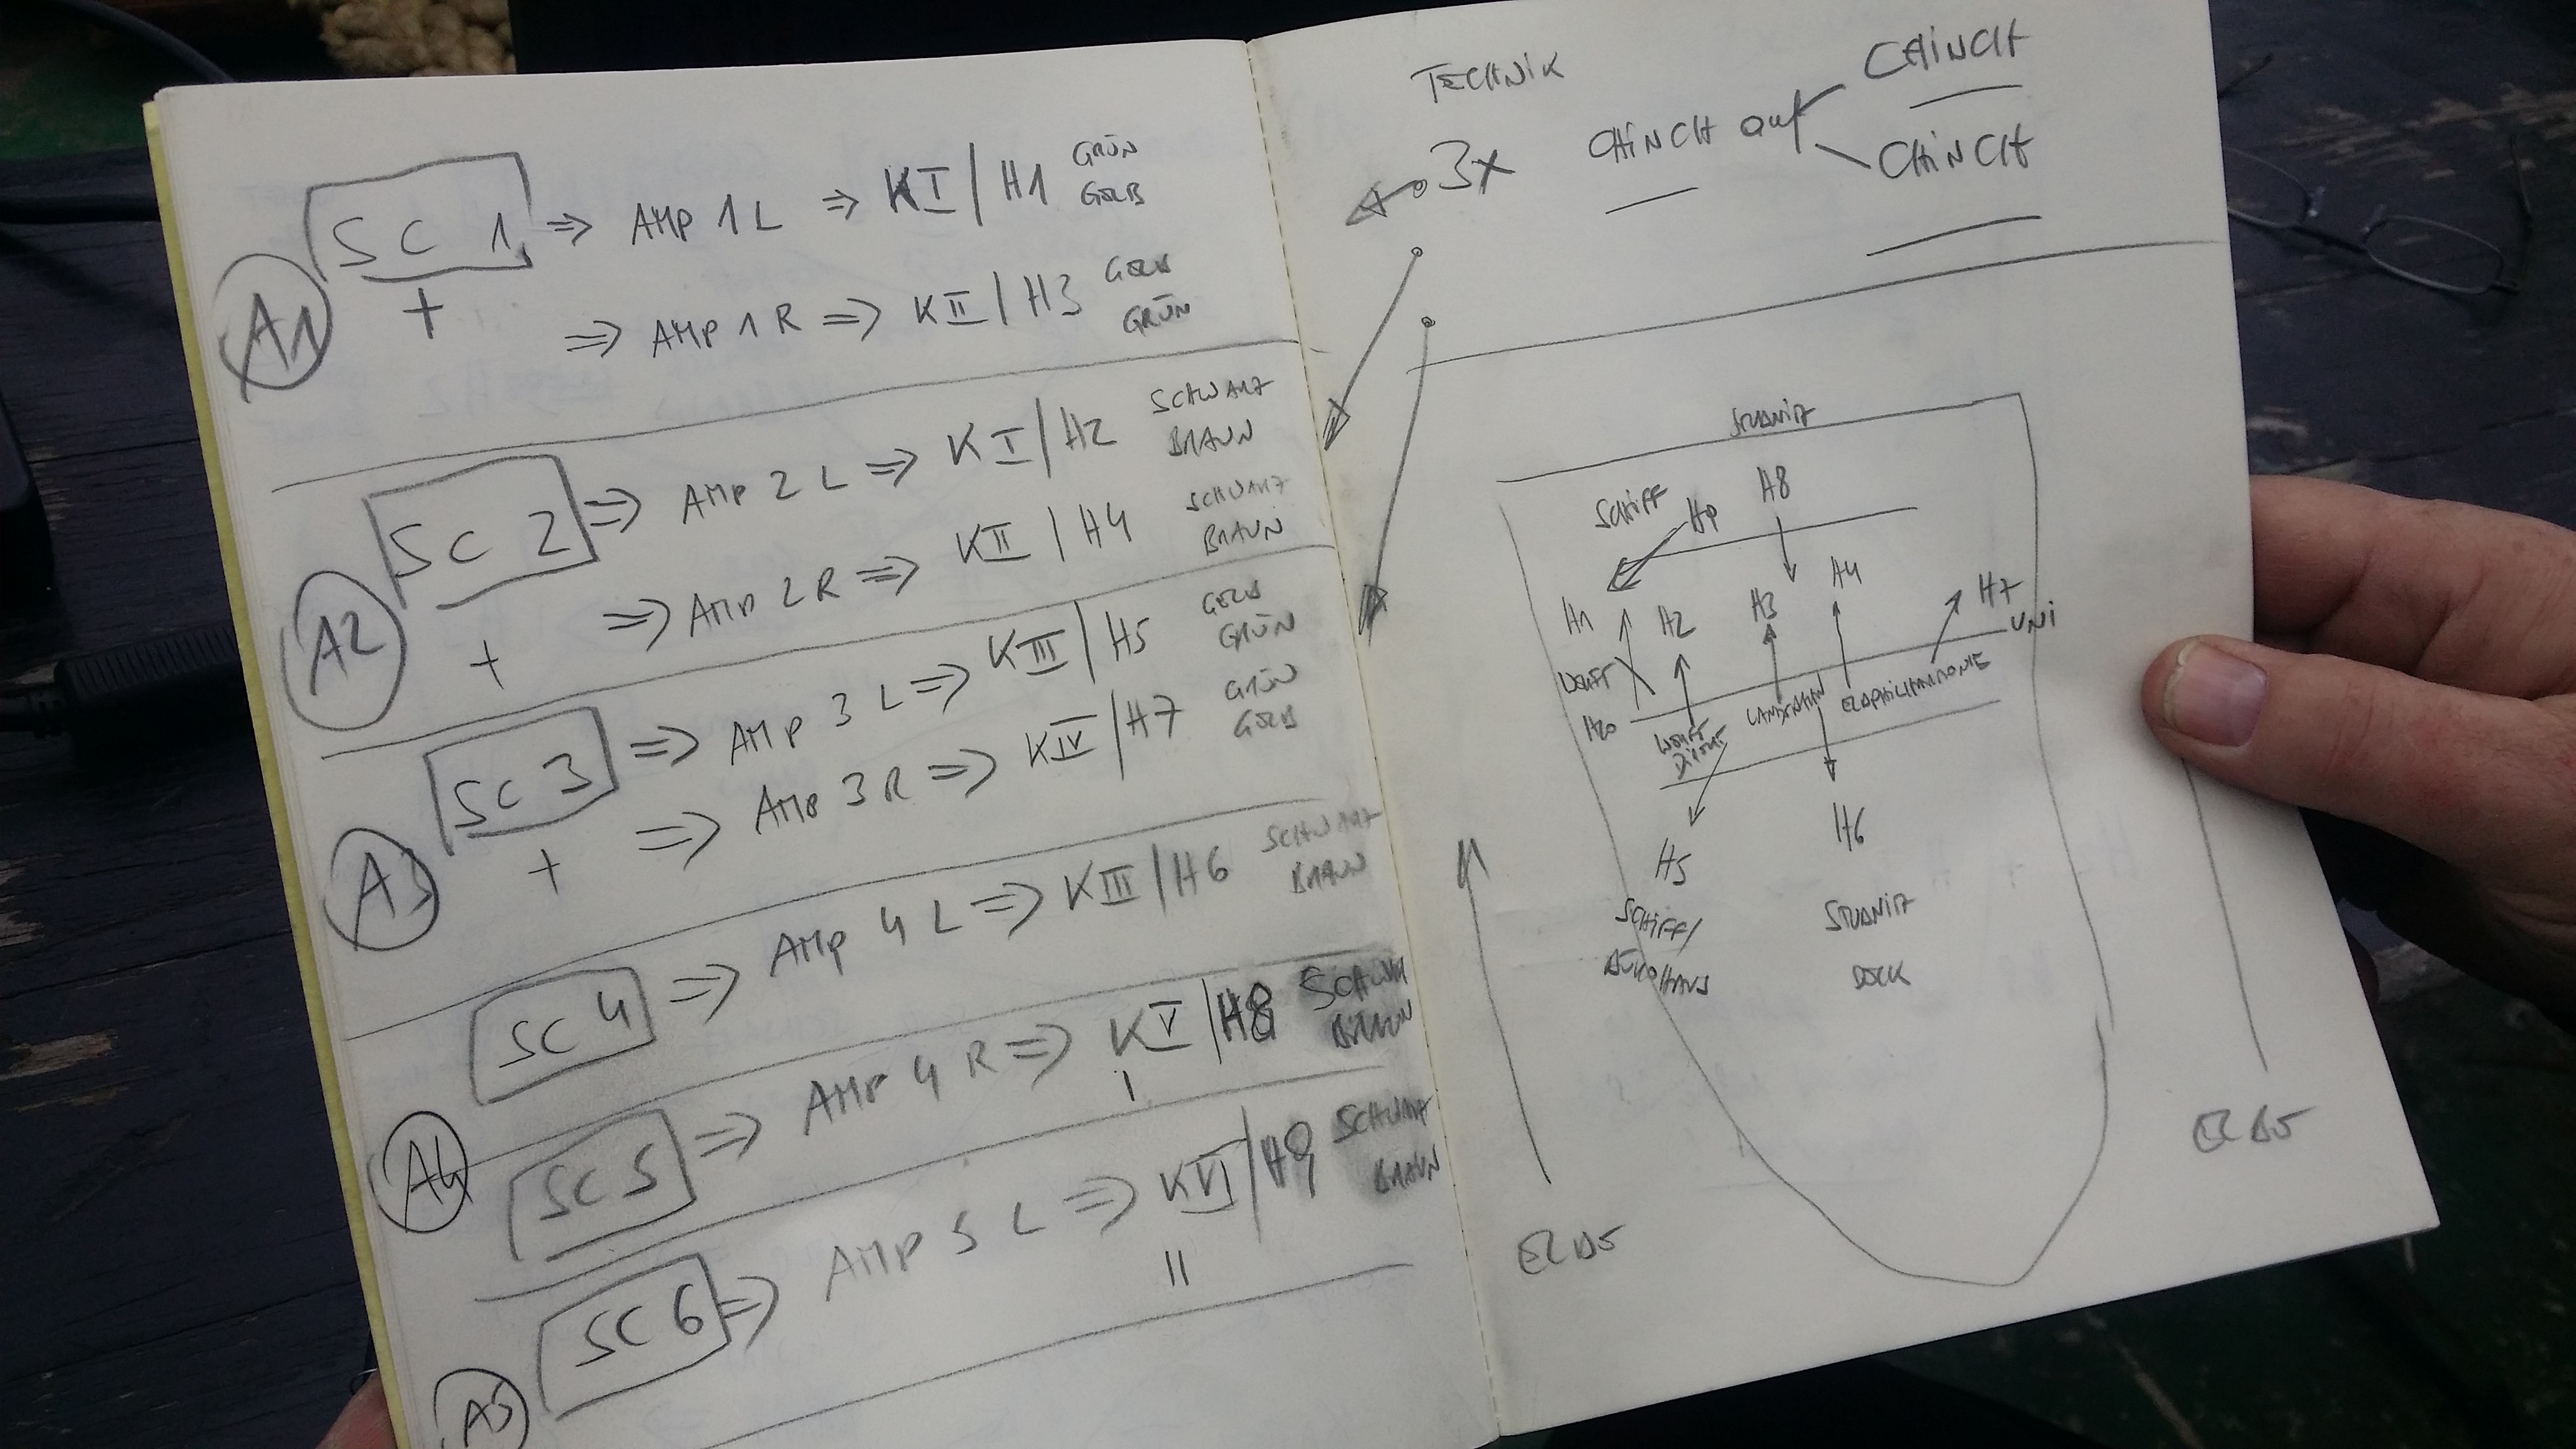 A1
SC 1 ⇒ AMP 1 L ⇒ K I / H1 GRÜN GELB
+
⇒ AMP 1 R ⇒ K II / H3 GELB GRÜN
A2
SC 2 ⇒ AMP 2 L ⇒ K I / H2 SCHWARZ BRAUN
+
⇒ AMP 2 R ⇒ K II / H4 SCHWARZ BRAUN
A3
SC 3 ⇒ AMP 3 L ⇒ K III / H5 GELB GRÜN
+
⇒ AMP 3 R ⇒ K IV / H7 GRÜN GELB
SC 4 ⇒ AMP 4 L ⇒ K III / H6 SCHWARZ BRAUN
A4
SC 5 ⇒ AMP 4 R ⇒ K V / H8 SCHWARZ BRAUN
I
SC 6 ⇒ AMP 5 L ⇒ K VI / H9 SCHWARZ BRAUN
II
A5
TECHNIK
3x CHINCH auf CHINCH
CHINCH
SCHIFF
H8
H1
H2
H3
H4
H7
UNI
WERFT
LANDSTRAHM
ELBPHILHARMONIE
H5
H6
SCHIFF/
DOCK
ELBE
ELBE